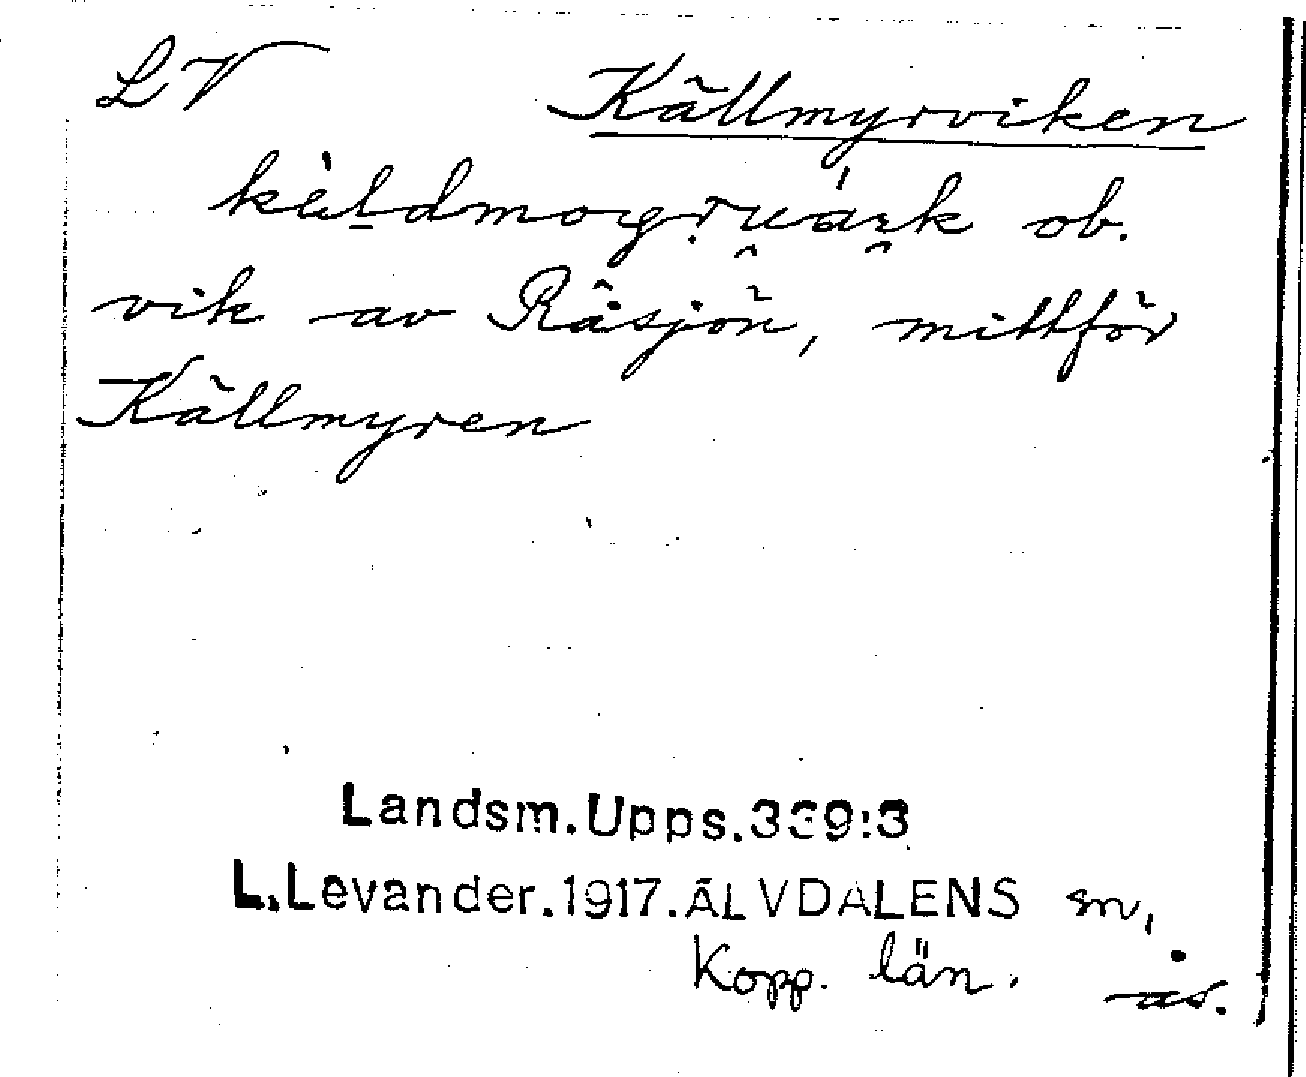 LV Källmyrviken
ob.
vik av Råsjön, mittför
Källmyren
Landsm.Upps.339:3
L.Levander.1917.ÄLVDALENS sn,
Kopp. län. as.